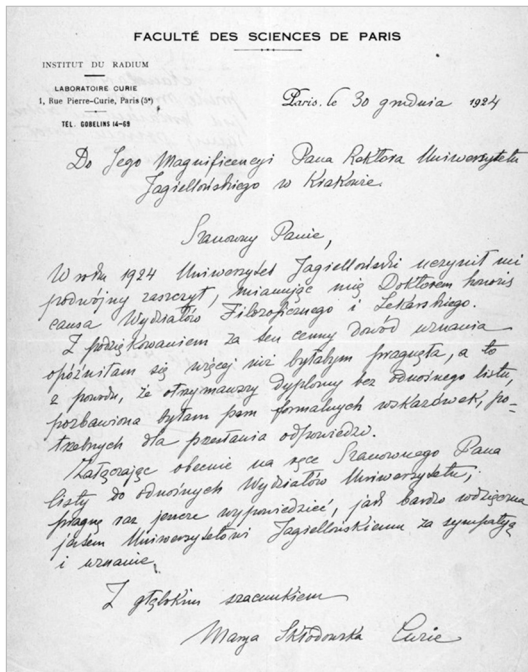 FACULTÉ DES SCIENCES DE PARIS
INSTITUT DU RADIUM
LABORATOIRE CURIE
1, Rue Pierre-Curie, Paris (5e)
TÉL. GOBELINS 14-69
Paris, le 30 grudnia 1924
Do Jego Magnificencyi Pana Rektora Uniwersytetu
Jagiellońskiego w Krakowie
Szanowny Panie,
W roku 1924 Uniwersytet Jagielloński uczynił mi
podwójny zaszczyt, mianując mię Doktorem honoris
causa Wydziałów Filozoficznego i Lekarskiego.
Z podziękowaniem za ten cenny dowód uznania
opóźniłam się więcej niż byłabym pragnęła, a to
z powodu, że otrzymawszy dyplomy bez odnośnego listu,
pozbawiona byłam pewnych formalnych wskazówek, po-
trzebnych dla przesłania odpowiedzi.
Załączając obecnie na ręce Szanownego Pana
listy do odnośnych Wydziałów Uniwersytetu,
pragnę raz jeszcze wypowiedzieć, jak bardzo wdzięczna
jestem Uniwersytetowi Jagiellońskiemu za sympatyę
i uznanie.
Z głębokim szacunkiem
Marya Skłodowska Curie